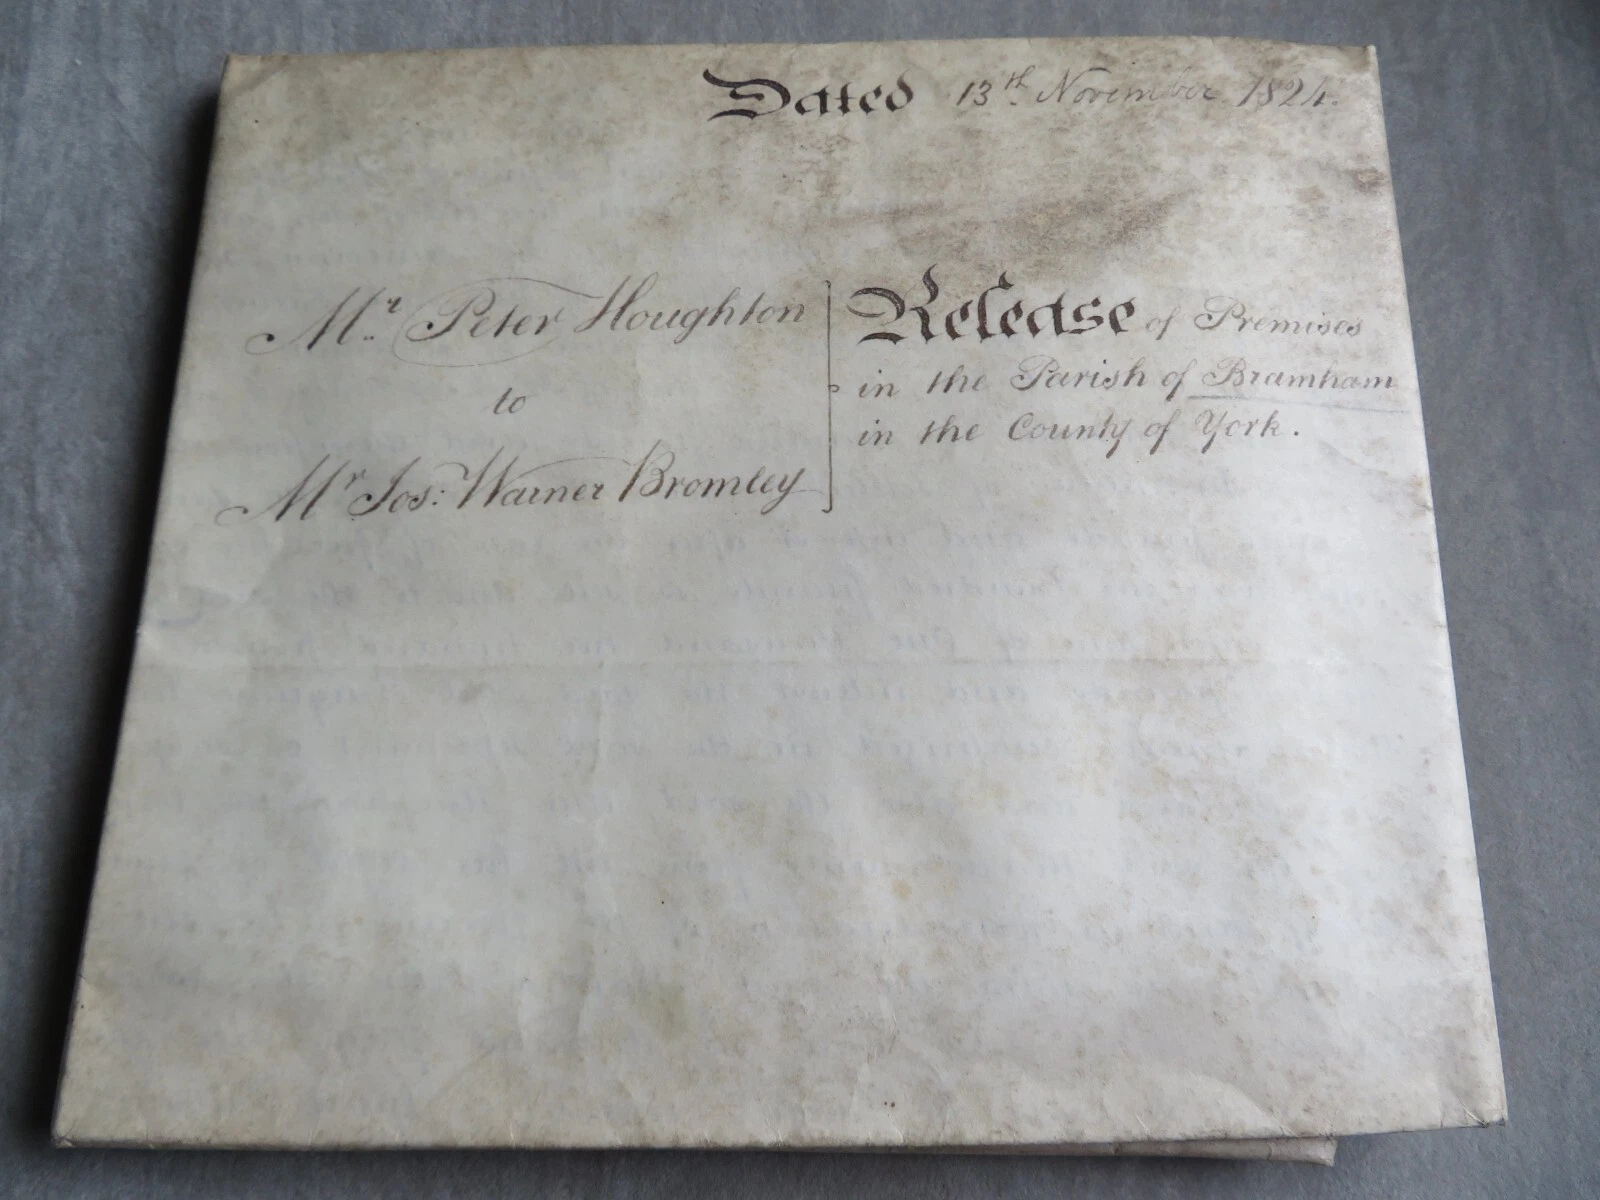 Dated 13th. November 1824.
Mr. Peter Houghton
to
Mr Jos: Warner Bromley
Release of Premises
in the Parish of Bramham
in the County of York.